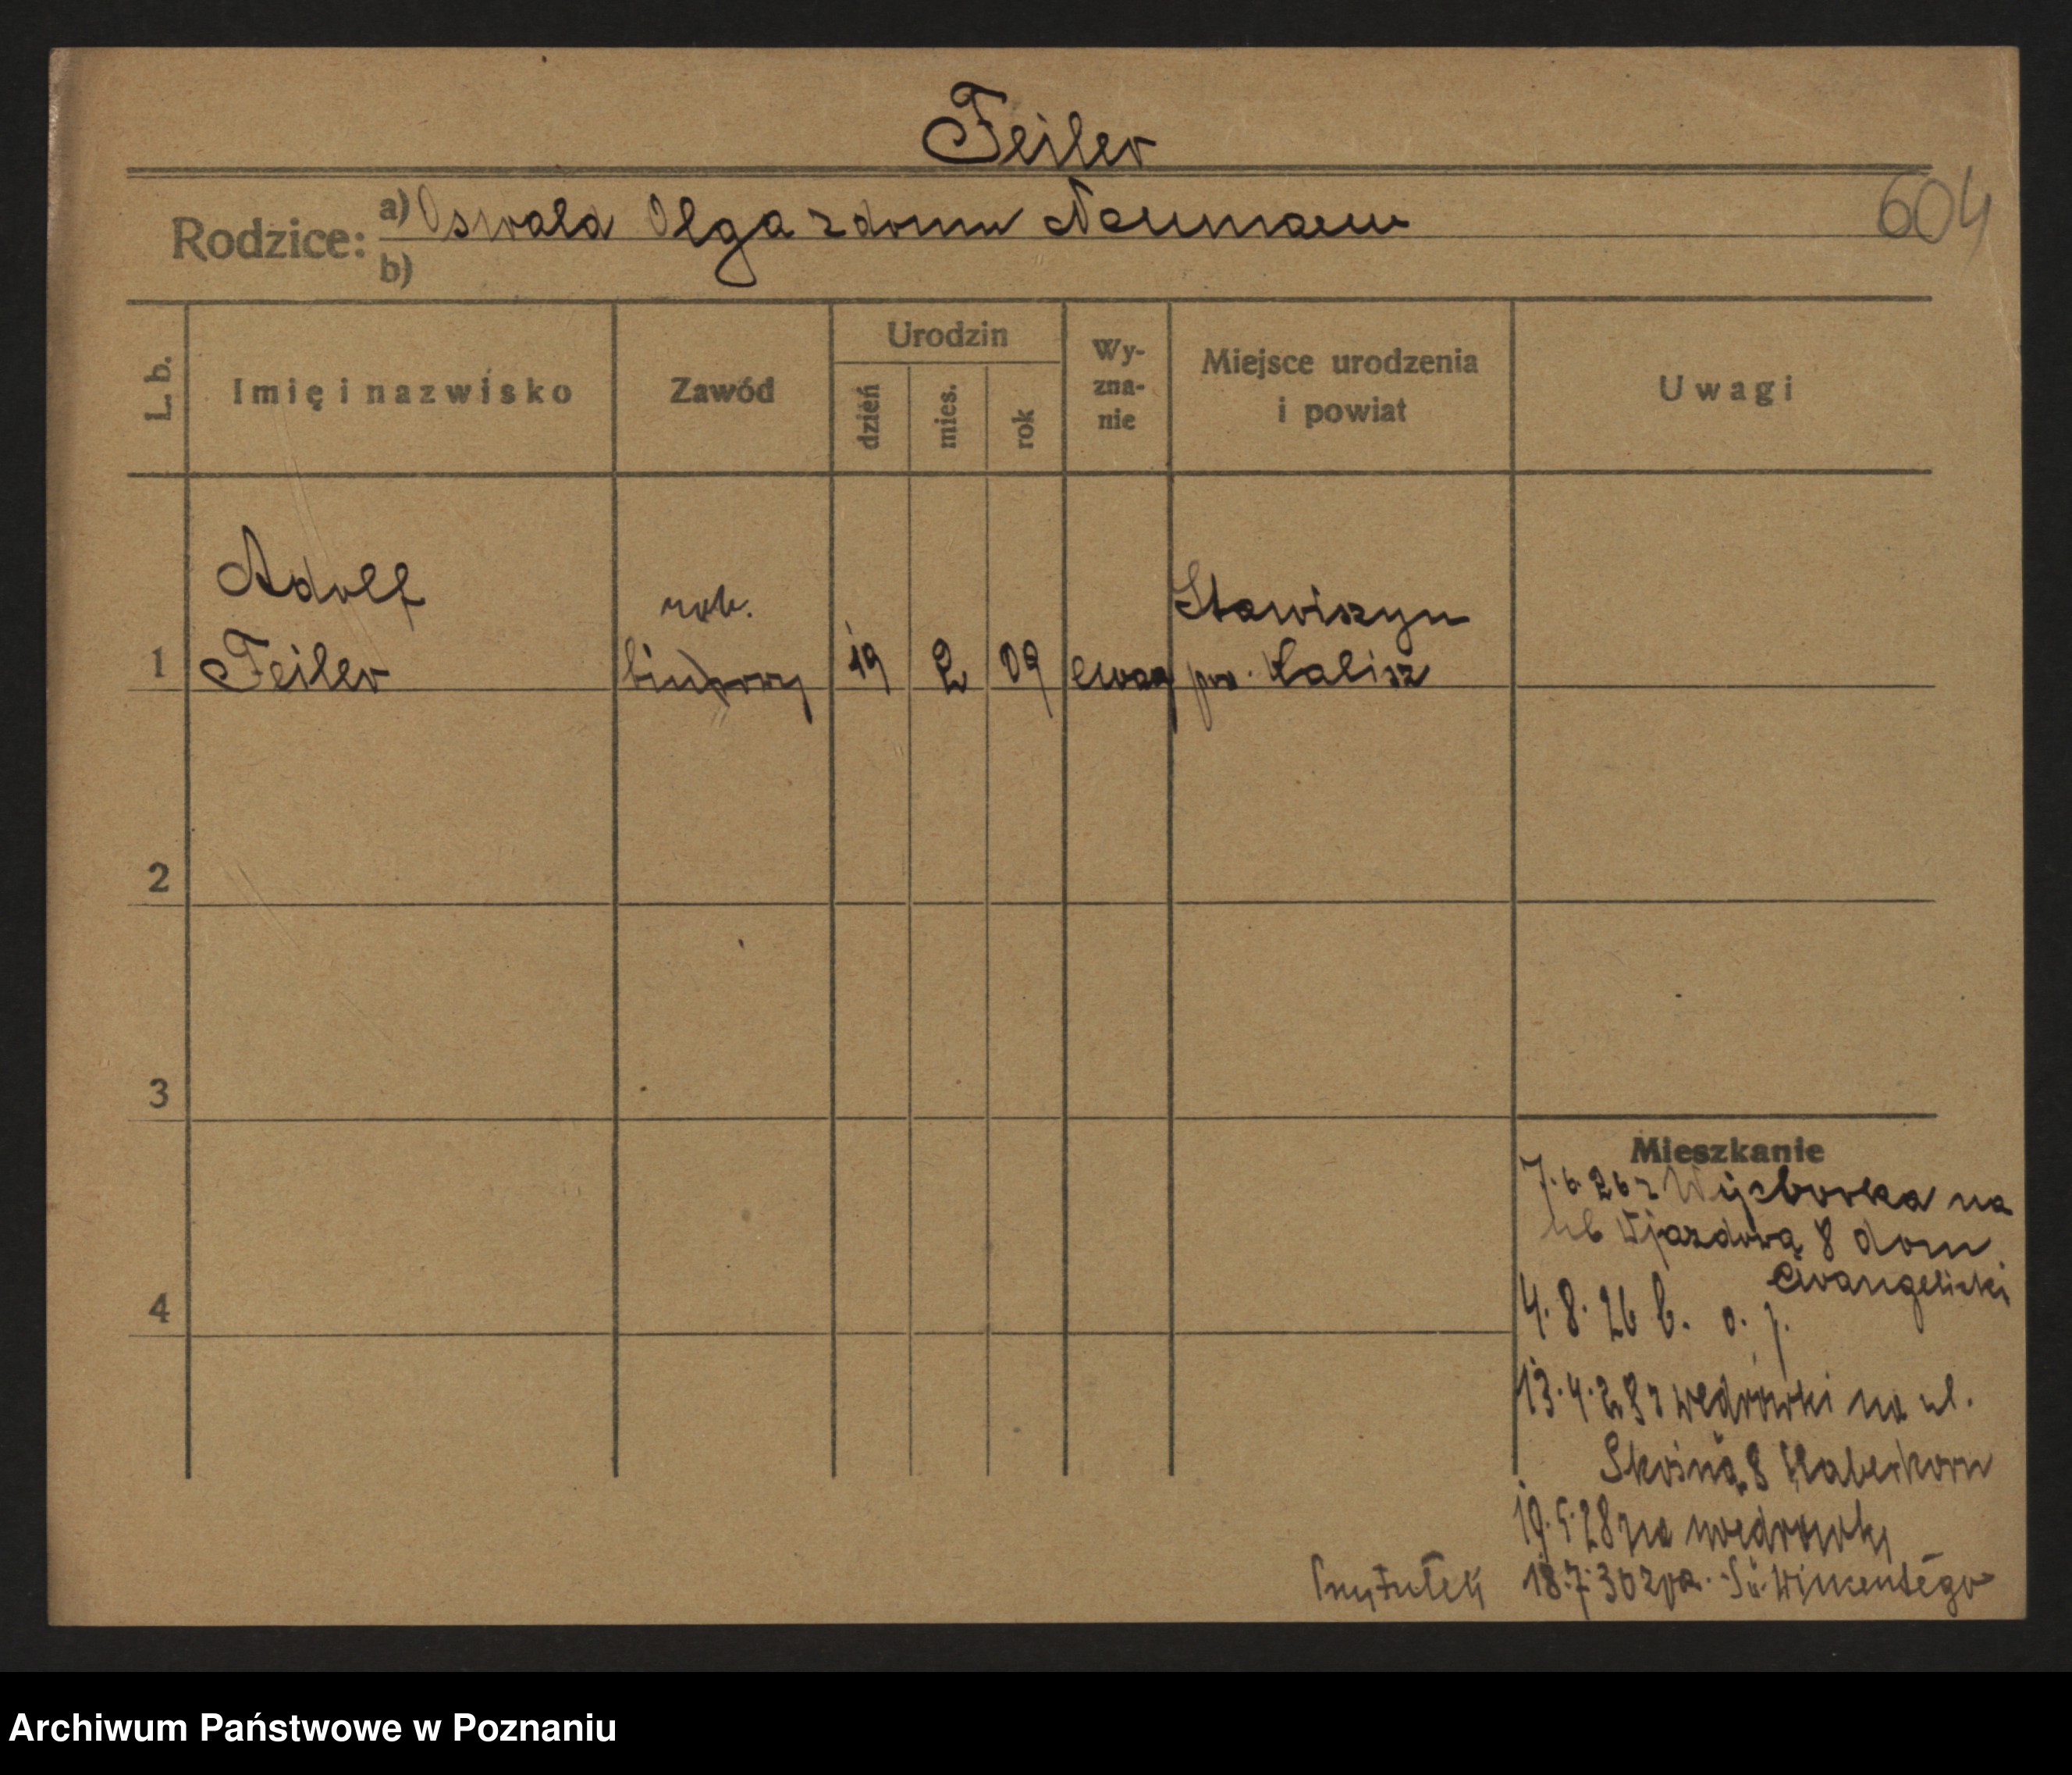 Feiler
604
Rodzice: a) Oswald Olga z domu Neumann
b)
L. b.
Imię i nazwisko
Zawód
Urodzin
dzień
mies.
rok
Wy-
zna-
nie
Miejsce urodzenia
i powiat
Uwagi
1
Adolf
Feiler
rob.
biurowy
19
2
09
ewag
Stawiszyn
pow. Kalisz
2
3
4
Mieszkanie
7.6.26 z na
Wjazdową 8 dom
Ewangelicki
4.8.26 b. o. p.
13.4.28 z wędrówki na ul.
Skośną 8 Haberkorn
19.5.28 na wędrówkę
Przytułek 18.7.30 Św. Wincentego
Archiwum Państwowe w Poznaniu